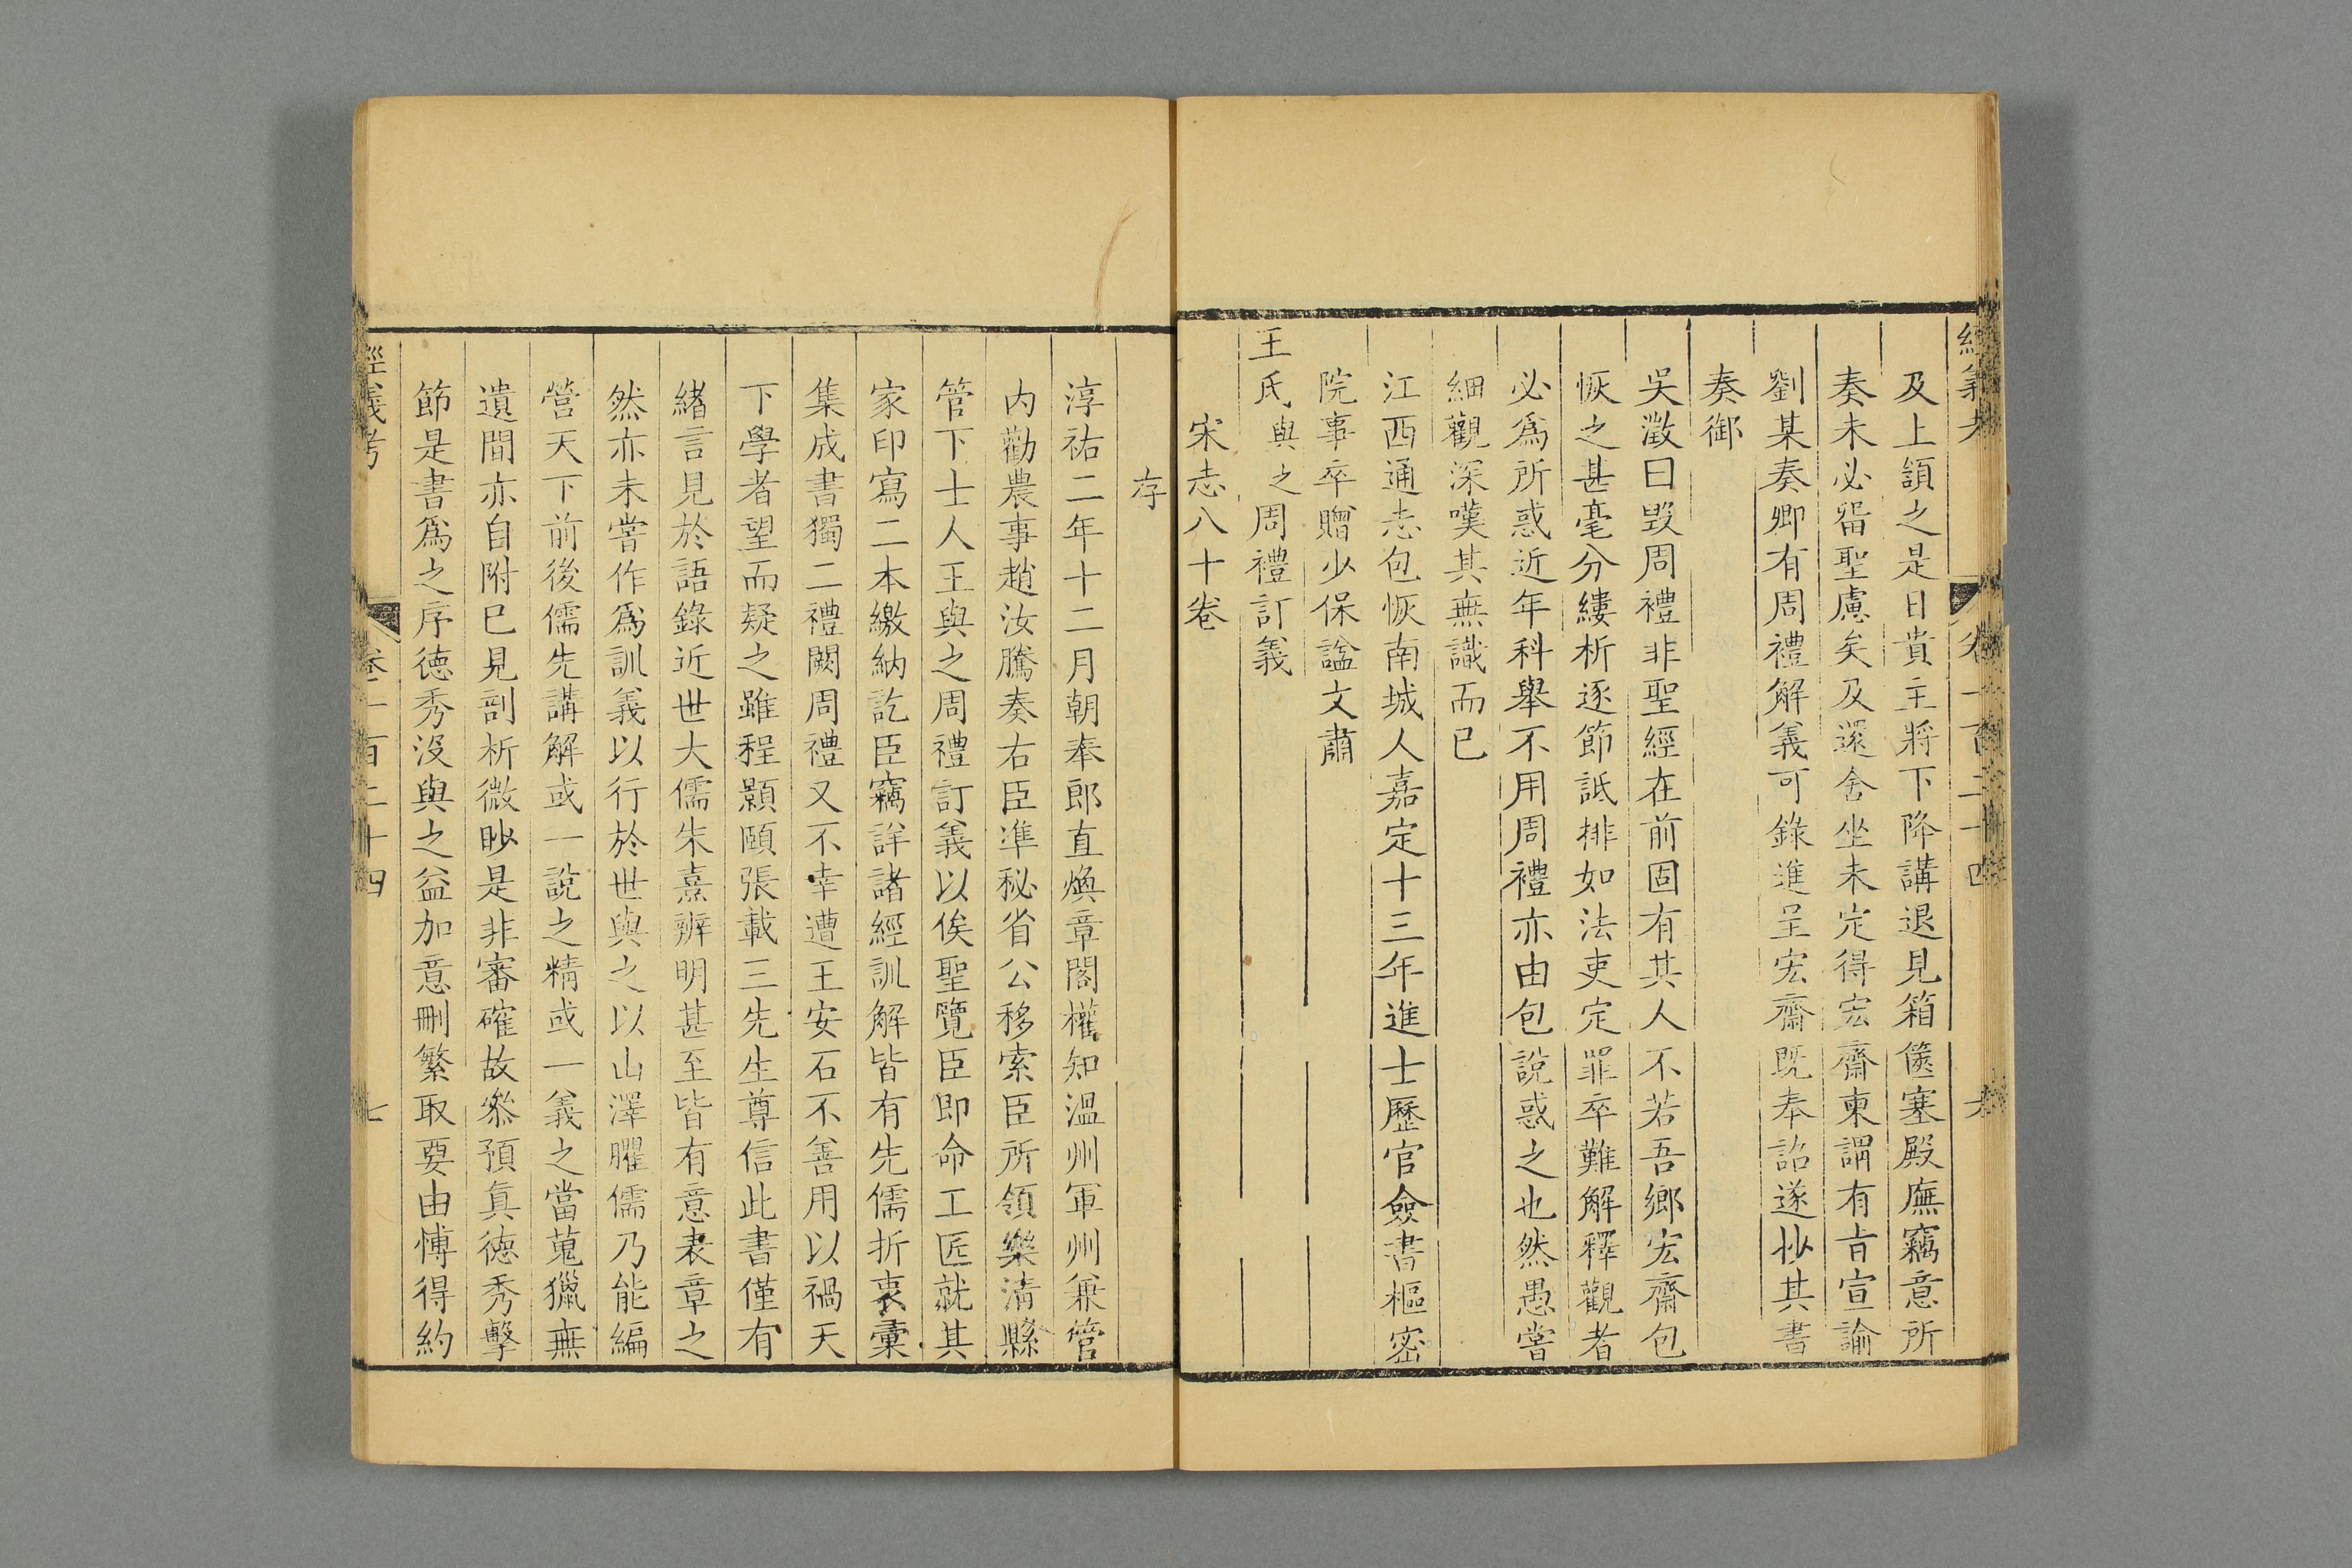 及上頷之是日貴主將下降講退見箱篋塞殿廡竊意所
奏未必畱聖慮矣及還舍坐未定得宏齋柬謂有旨宣諭
劉某奏卿有周禮解義可錄進呈宏齋既奉詔遂抄其書
奏御
吳澂曰毁周禮非聖經在前固有其人不若吾鄉宏齋包
恢之甚毫分縷析逐節詆排如法吏定罪卒難解釋觀者
必爲所惑近年科舉不用周禮亦由包說惑之也然愚嘗
細觀深嘆其無識而已
江西通志包恢南城人嘉定十三年進士歷官僉書樞密
院事卒贈少保諡文肅
王氏與之周禮訂義
宋志八十卷
存
淳祐二年十二月朝奉郎直煥章閣權知溫州軍州兼管
內勸農事趙汝騰奏右臣準秘省公移索臣所領樂清縣
管下士人王與之周禮訂義以俟聖覽臣即命工匠就其
家印寫二本繳納訖臣竊詳諸經訓解皆有先儒折衷彙
集成書獨二禮闕周禮又不幸遭王安石不善用以禍天
下學者望而疑之雖程顥頤張載三先生尊信此書僅有
緒言見於語錄近世大儒朱熹辨明甚至皆有意表章之
然亦未嘗作爲訓義以行於世與之以山澤臞儒乃能編
營天下前後儒先講解或一說之精或一義之當蒐獵無
遺間亦自附已見剖析微眇是非審確故叅預眞德秀擊
節是書爲之序德秀沒與之益加意刪繁取要由博得約
經義考 卷一百二十四 七